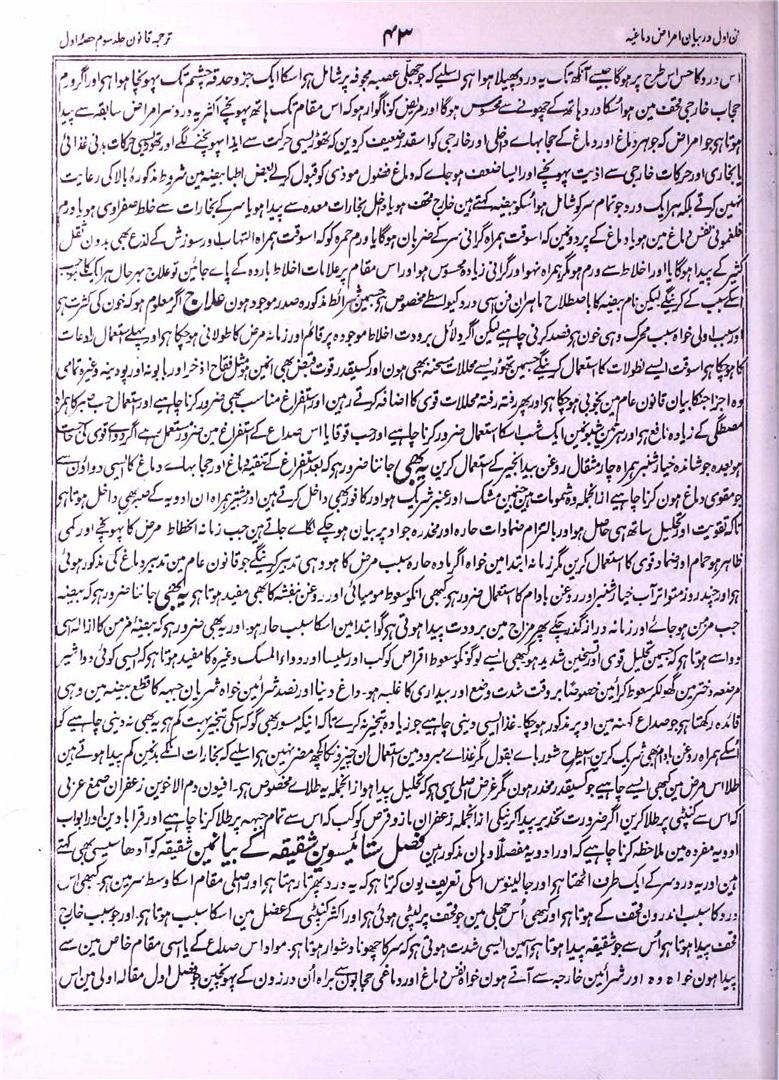 فن اول در بیان امراض دماغیہ ۴۳ ترجمہ قانون جلد سوم حصۂ اول
اس درد کا حس اس طرح پر ہوگا جیسے آنکھ تک یہ درد پھیلا ہوا ہو اسلیے کہ جو جھلی عصبہ مجوفہ پر شامل ہو اسکا ایک جزو حدقہ چشم تک پہونچا ہوا ہو اور اگر ورم
حجاب خارجی قحف مین ہو اسکا درد ہاتھ کے چھونے سے محسوس ہوگا اور مریض کو ناگوار ہو کہ اس مقام تک ہاتھ پہونچے اکثر یہ درد سر امراض سابقہ سے پیدا
ہوتا ہو جو امراض کہ جوہر دماغ اور دماغ کے حجابہاے داخلی اور خارجی کو اسقدر ضعیف کردین کہ تھوڑیسی حرکت سے ایذا پہونچنے لگے اور تھوڑیسی حرکات بدنی غذائی
یا بخاری اور حرکات خارجی سے اذیت پہونچے اور ایسا ضعف ہوجاے کہ دماغ فضول موذی کو قبول کرلے بعض اطبا بیضہ مین شروط مذکورۂ بالا کی رعایت
نہین کرتے بلکہ ہر ایک درد جو تمام سر کو شامل ہو اسکو بیضہ کہتے ہین خارج قحف ہو یا داخل بخارات معدہ سے پیدا ہو یا سر کے بخارات سے خلط صفراوی ہو یا ورم
فلغمونی نفس دماغ مین ہو یا دماغ کے پردونمین کہ اسوقت ہمراہ گرانی سر کے ضربان ہوگا یا ورم حمرہ کو کہ اسوقت ہمراہ التہاب اور سوزش کے لذع بھی بدون ثقل
کثیر کے پیدا ہوگا یا اور اخلاط سے ورم ہو مگر ہمراہ نہو اور گرانی زیادہ محسوس ہو اور اس مقام پر علامات اخلاط باردہ کے پاے جائین تو علاج بہرحال ہر ایک کا بحسب
اسکے سبب کے کرینگے لیکن نام بیضہ کا باصطلاح ماہران فن اسی درد کیواسطے مخصوص ہو جسمین شرائط مذکورہ صدر موجود ہون علاج اگر معلوم ہو کہ خون کی کثرت ہو
اور سبب اولی خواہ سبب محرک وہی خون ہو فصد کرنی چاہیے لیکن اگر دلائل برودت اخلاط موجودہ پر قائم اور زمانہ مرض کا طولانی ہوچکا ہو اور پہلے استعمال رادعات
کا ہوچکا ہو اسوقت ایسے نطولات کا استعمال کرینگے جسمین تھوڑے سے محللات مسخنہ بھی ہون اور کسیقدر قوت قبض بھی انمین ہو مثل فقاح اذخر اور بابونہ اور پودینہ وغیرہ تمامی
وہ اجزا جنکا بیان قانون عام مین بخوبی ہوچکا ہو اور پھر رفتہ رفتہ محللات قوی کا اضافہ کرتے رہین اور استفراغ مناسب بھی ضرور کرنا چاہیے اور استعمال حب صبر کا ہمراہ
مصطگی کے زیادہ نافع ہو اور ہر تین شبونمین ایک شب اسکا استعمال ضرور کرنا چاہیے اور حب قوقایا اس صداع کے استفراغ مین ضرور مستعمل ہے اگر دوائے قوی کی حاجت
ہو بعدہ جوشاندہ خیارشنبر ہمراہ چار مثقال روغن بیدانجیر کے استعمال کرین یہ بھی جاننا ضرور ہو کہ بعد استفراغ کے تنقیہ دماغ اور حجابہاے دماغ کا ایسی دواؤن سے
جو مقوی دماغ ہون کرنا چاہیے ازانجملہ وہ شمومات ہین جنمین مشک اور عنبر شریک ہو اور کافور بھی داخل کرتے ہین اور بیشتر ہمراہ ان ادویہ کے صبر بھی داخل ہوتا ہو
تاکہ تقویت اور تحلیل ساتھ ہی حاصل ہو اور بالتزام ضمادات حارہ اور مخدرہ جو اوپر بیان ہوچکے لگاے جاتے ہین جب زمانہ انحطاط مرض کا پہونچے اور کمی
ظاہر ہو حمام اور ضماد قوی کا استعمال کرین مگر زمانہ ابتدا مین خواہ اگر مادہ حارہ سبب مرض کا ہو وہی تدبیر کرینگے جو قانون عام مین تدبیر دماغ کی مذکور ہوئی
ہو اور چند روز متواتر آب خیارشنبر اور روغن بادام کا استعمال ضرور ہو کبھی انکو سعوط مومیائی اور روغن بنفشہ کا بھی مفید ہوتا ہو یہ بھی جاننا ضرور ہو کہ بیضہ
جب مزمن ہوجاے اور زمانہ دراز گذر چکے پھر مزاج مین برودت پیدا ہوتی ہو گو ابتدا مین اسکا سبب حار ہو۔ اور یہ بھی ضرور ہو کہ بیضۂ مزمن کا ازالہ ہی
دوا سے ہوتا ہو کہ جسمین تحلیل قوی اور تسخین شدید ہو کبھی ایسے لوگونکو سعوط اقراص کوکب اور شلیثا اور دواء المسک وغیرہ کا مفید ہوتا ہو کہ ایسی کوئی دوا شیر
مرضعہ دختر مین گھولکر سعوط کرائین خصوصا بروقت شدت وجع اور بیداری کا غلبہ ہو۔ داغ دینا اور فصد شرائین خواہ شریان جبہہ کا قطع بیضہ مین وہی
فائدہ رکھتا ہو جو صداع کہنہ مین اوپر مذکور ہوچکا۔ غذا ایسی دینی چاہیے جو زیادہ تبخیر نہ کرے تا کہ انیکہ مسور بھی گو کہ اسکی تبخیر بہت کم ہو یہ بھی نہ دینی چاہیے گو
اسکے ہمراہ روغن بادام بھی شریک کرین اسیطرح شوربا بے بقول مگر غذاے مبرود مین استعمال ان چیزونکا کچھ مضر نہین ہو اسلیے کہ بخارات انکے بدنمین کم پیدا ہوتے ہین
طلا اس مرض مین کبھی ایسے چاہیے جو کسیقدر مخدر ہون مگر غرض اصلی یہی ہو کہ تحلیل پیدا ہو ازانجملہ یہ طلا سے مخصوص ہو۔ افیون دم الاخوین زعفران صمغ عربی
کہ اس سے کنپٹی پر طلا کرین اگر ضرورت تخدیر پیدا کرنیکی ازانجملہ زعفران مازو قرص کوکب کہ اس سے تمام جبہہ پر طلا کرنا چاہیے اور قرابادین اور ابواب
ادویہ مفردہ مین ملاحظہ کرنا چاہیے کہ اور ادویہ مفصلا وہان مذکور ہین فصل ستائیسوین شقیقہ کے بیانمین شقیقہ کو آدھاسیسی بھی کہتے
ہین اور یہ درد سر کے ایک طرف اٹھتا ہو اور جالینوس اسکی تعریف یون کرتا ہو کہ یہ درد ٹھہرتا رہتا ہو اور اصلی مقام اسکا وسط سر مین ہو کبھی اس
درد کا سبب اندرون قحف کے ہوتا ہو اور کبھی اُس جھلی مین جو قحف پر لپٹی ہوئی ہو اور اکثر کنپٹی کے عضل مین اسکا سبب ہوتا ہو۔ اور جو سبب خارج
قحف پیدا ہوتا ہو اُس سے جو شقیقہ پیدا ہوتا ہو اسمین ایسی شدت ہوتی ہو کہ سر کا چھونا دشوار ہوتا ہو۔ مواد اس صداع کے یا اسی مقام خاص مین سے
پیدا ہون خواہ وہ اور شرائین خارجہ سے آتے ہون خواہ نفس دماغ اور دماغی حجابون سے براہ اُن درزون کے پہونچین جو فصل اول مقالہ اولی مین اس